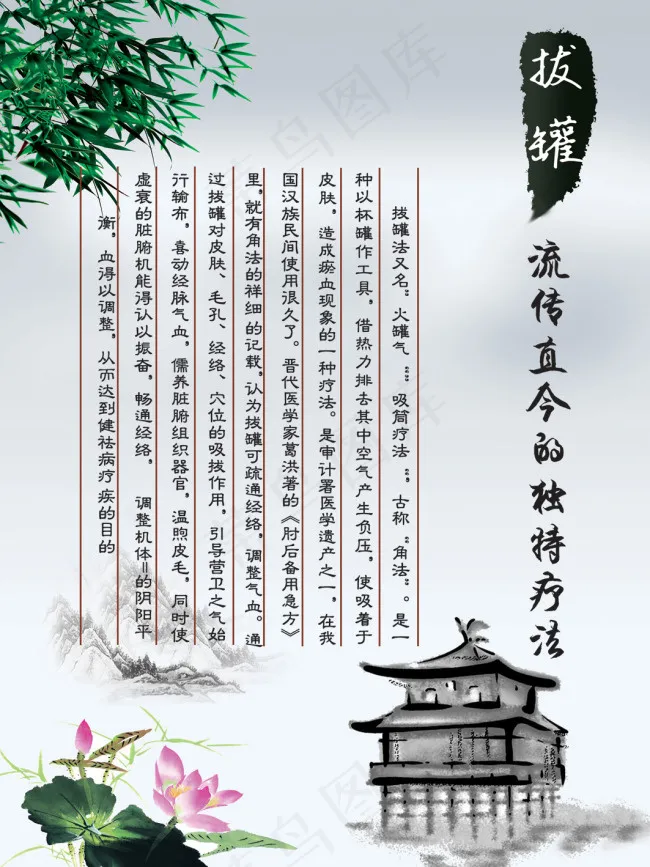 拔罐
流传直今的独特疗法
拔罐法又名“火罐气“”吸筒疗法“,古称“角法”。是一
种以杯罐作工具,借热力排去其中空气产生负压,使吸着于
皮肤,造成瘀血现象的一种疗法。是审计署医学遗产之一,在我
国汉族民间使用很久了。晋代医学家葛洪著的《肘后备用急方》
里,就有角法的祥细的记载,认为拔罐可疏通经络,调整气血。通
过拔罐对皮肤、毛孔、经络、穴位的吸拔作用,引导营卫之气始
行输布,喜动经脉气血,儒养脏腑组织器官,温煦皮毛,同时使
虚衰的脏腑机能得认以振奋,畅通经络, 调整机体=的阴阳平
衡,血得以调整,从而达到健祛病疗疾的目的
菜鸟图库